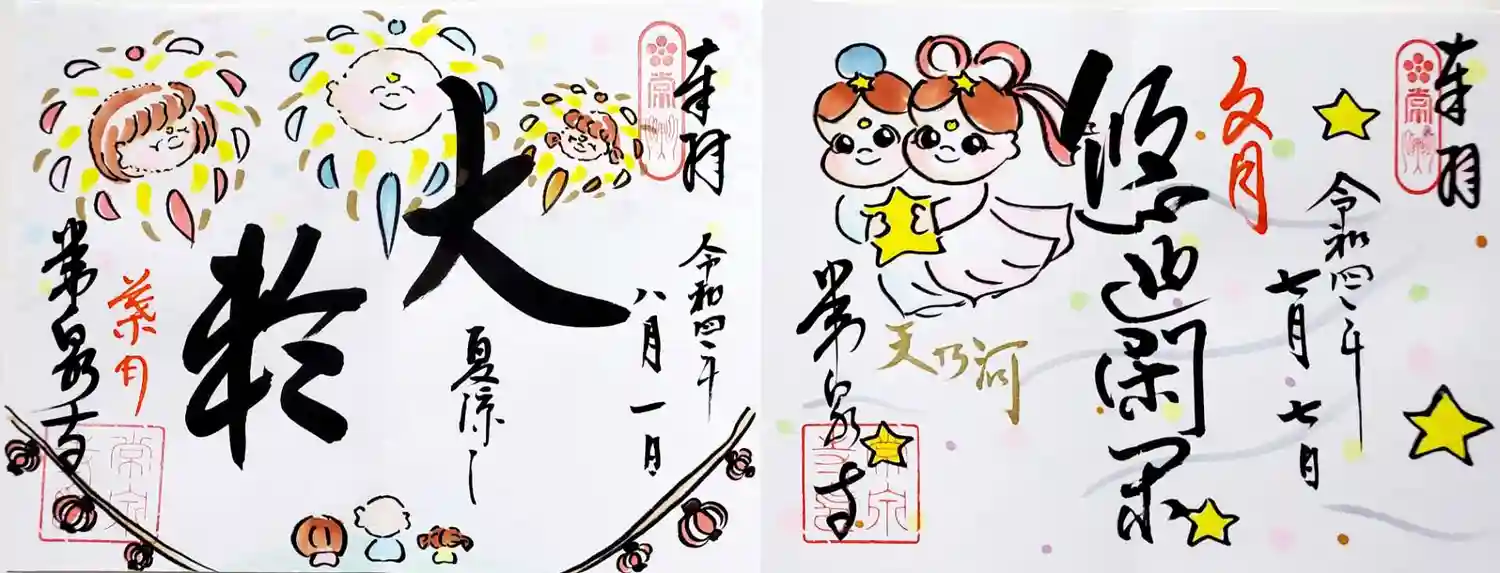 奉拝
令和四年
八月一日
大輪
夏涼し
葉月
常泉寺
奉拝
令和四年
七月七日
文月
悠
閑
天乃河
常泉寺